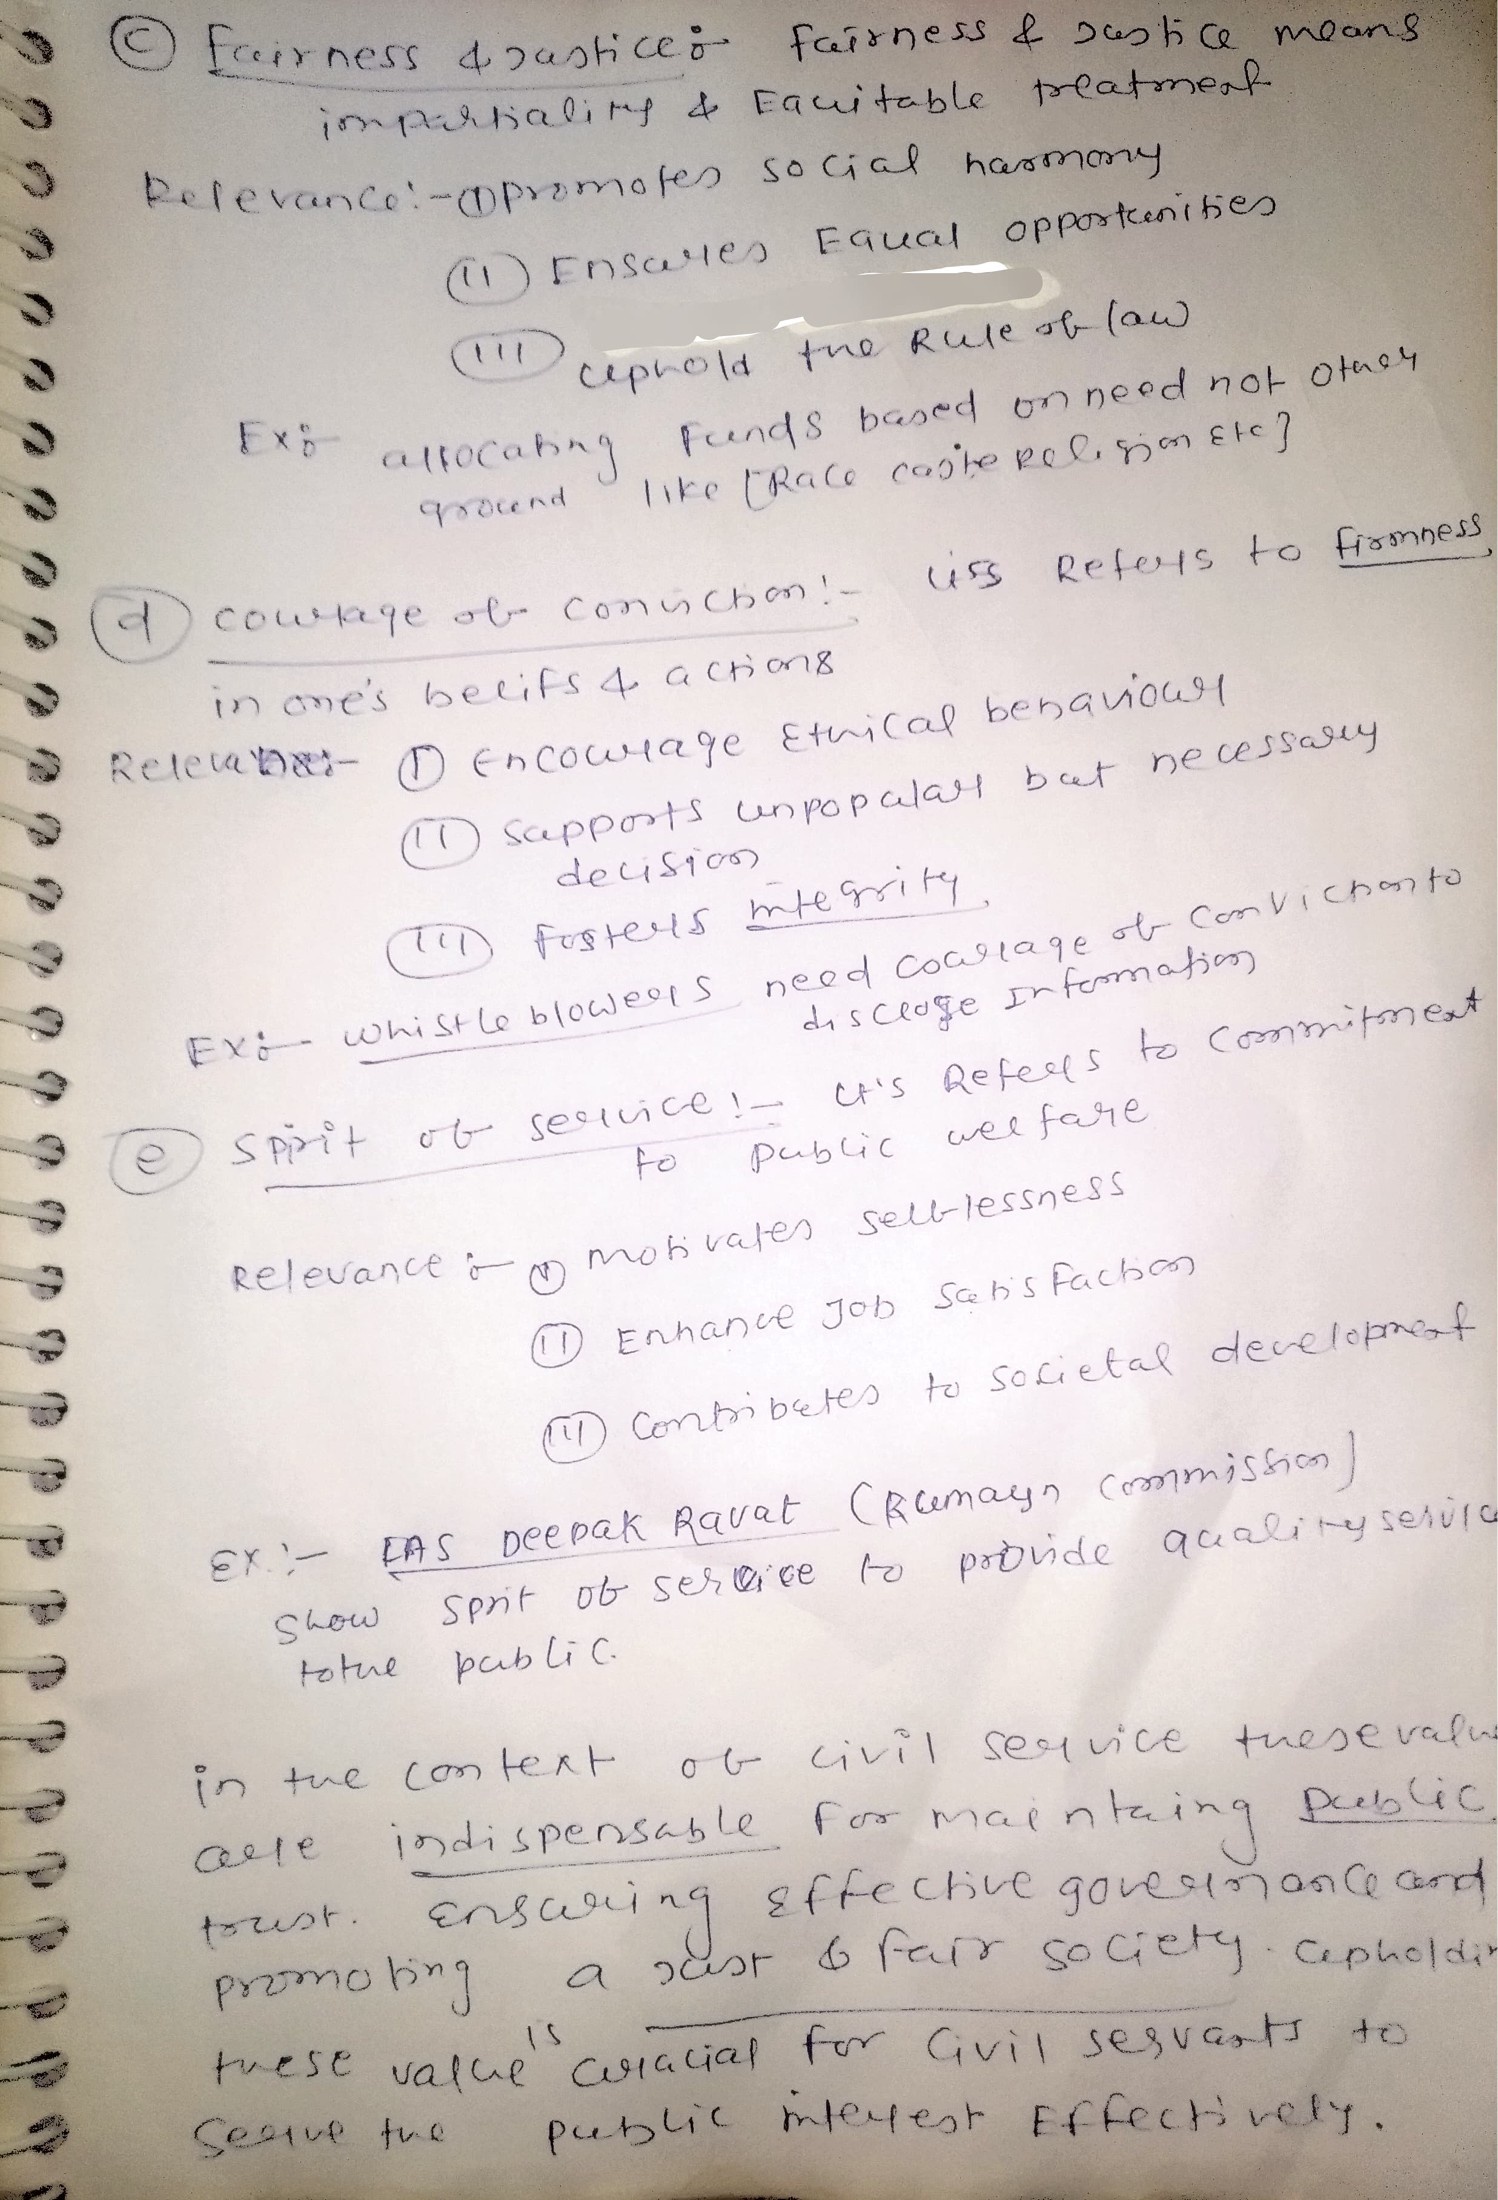 (C) Fairness & Justice :- Fairness & Justice means
impartiality & Equitable treatment
Relevance :- (I) promotes social harmony
(II) Ensures Equal opportunities
(III) uphold the Rule of law
Ex :- allocating Funds based on need not other
ground like [Race caste Religion Etc]
(d) courage of conviction :- it's Refers to firmness
in one's belifs & actions
Relevance :- (I) Encourage Ethical behaviour
(II) supports unpopular but necessary
decision
(III) Fosters integrity
Ex :- whistle blowers need courage of conviction to
disclose Information
(e) Spirit of service :- It's Refers to commitment
to public welfare
Relevance :- (I) motivates selflessness
(II) Enhance Job satisfaction
(III) contributes to societal development
Ex. :- IAS Deepak Ravat (Kumayn commission)
show sprit of service to provide quality service
to the public.
in the context of civil service these value
are indispensable for maintaing public
trust. Ensuring effective governance and
promoting a just & fair society. upholdin
these value is crucial for Civil servants to
serve the public interest Effectively.